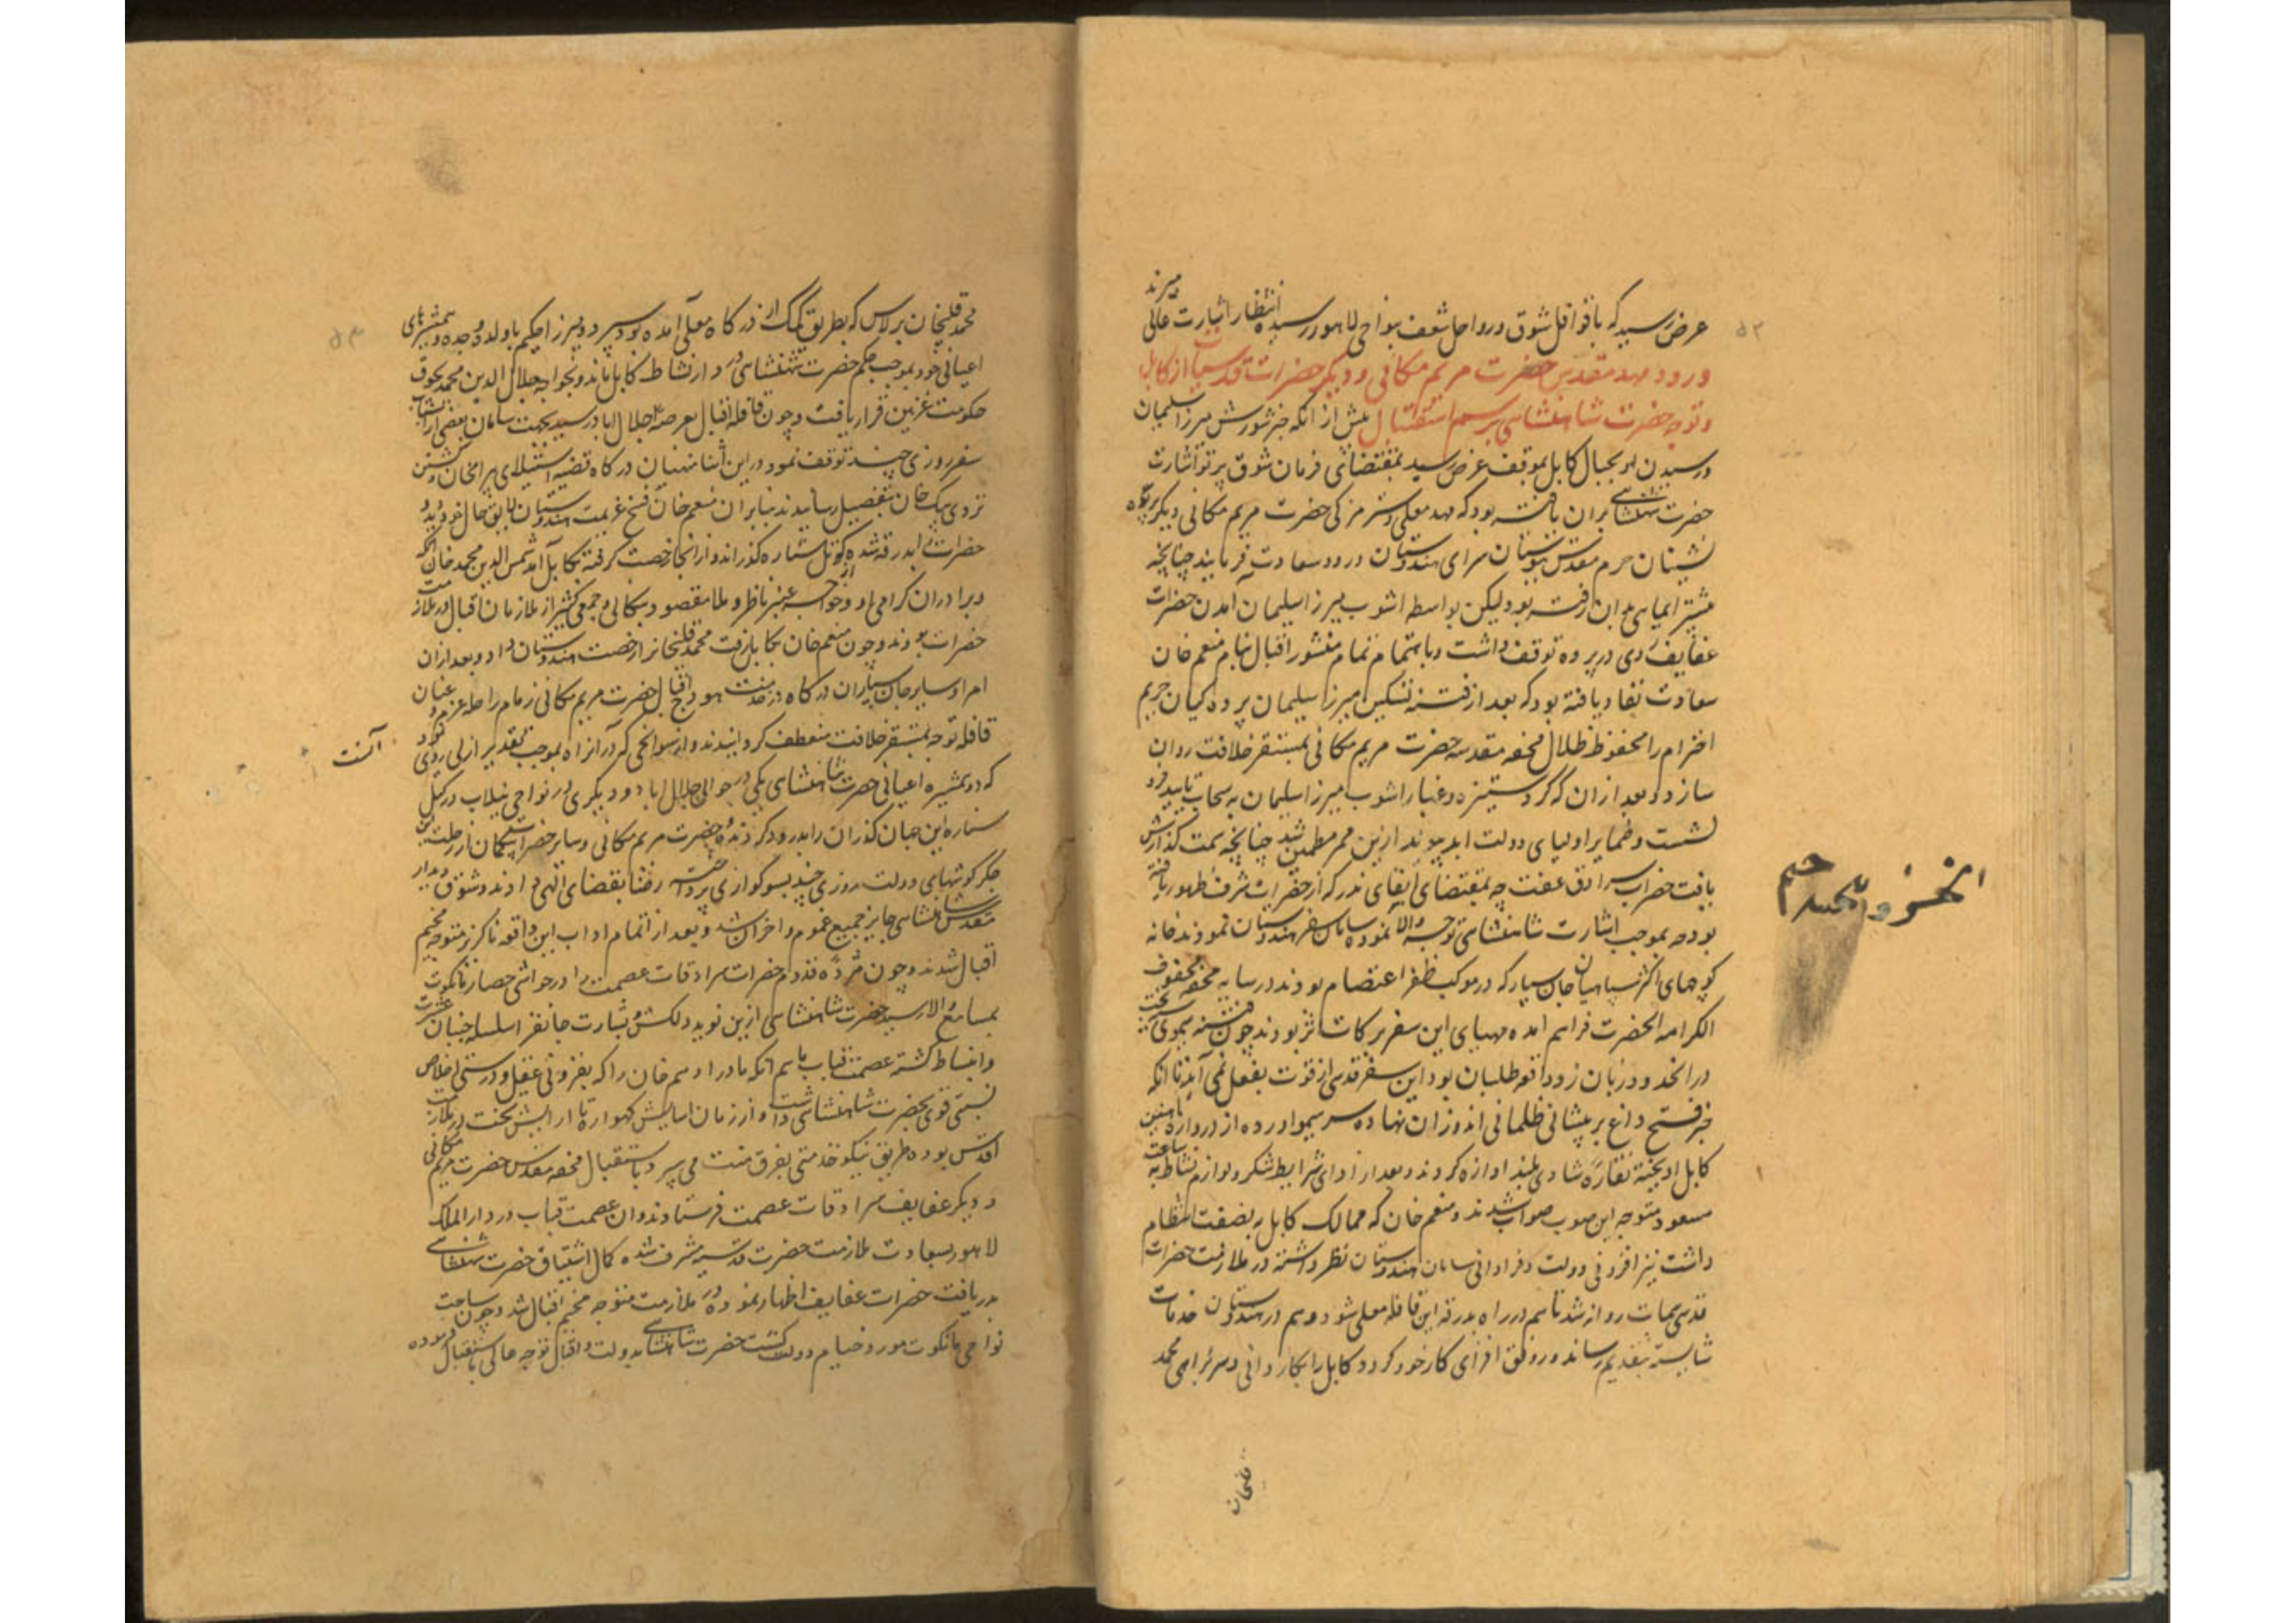 عرض رسید که با قوافل شوق و رواحل شعف بنواحی لاهور رسیده انتظار اشارت عالی میبرند
ورود مهد مقدس حضرت مریم مکانی و دیگر حضرات قدسیات از کابل
و توجه حضرت شاهنشاهی برسم استقبال پیش از آنکه خبر شورش میرزا سلیمان
و رسیدن او بجبال کابل بموقف عرض رسید بمقتضای فرمان شوق پرتو اشارت
حضرت شهنشاهی بران یافته بود که مهد معلی و ستر مزکی حضرت مریم مکانی و دیگر پرده
نشینان حرم مقدس ببوستان سرای هندوستان ورود سعادت فرمایند چنانچه
پیشتر ایمایی بدان رفته بود لیکن بواسطه اشوب میرزا سلیمان آمدن حضرات
عفایف روی در پرده توقف داشت و باهتمام تمام منشور اقبال بنام منعم خان
سعادت نفاذ یافته بود که بعد از فتنه تسکین میرزا سلیمان پرده کیان حریم
احترام را محفوظ ظلال محفه مقدسه حضرت مریم مکانی بمستقر خلافت روان
سازد و بعد ازان که کرد ستیزه و غبار اشوب میرزا سلیمان به سحاب تایید فرو
نشست و ضمایر اولیای دولت ابد پیوند ازین ممر مطمئن شد چنانچه سمت گذارش
یافت حضرات سرادق عفت چه بمقتضای ایفای نذر که از حضرات شرف ظهور یافته
بود و چه بموجب اشارت شاهنشاهی توجه والا نموده سامان سفر هندوستان نمودند خانه
کوچهای اکثر سپاهیان جان سپار که در موکب ظفر اعتصام بودند در سایه محفه محفوف
الکرامه الحضرت فراهم امده مهیای این سفر برکات اثر بودند چون فتنه هیموی سخت
در انحدود زبان زد واقعه طلبان بود این سفر قدسی از قوت بفعل نمی آمد تا انکه
خبر فتح داغ بر پیشانی ظلمانی اندوزان نهاده سر هیمو اورده از دروازه آهنین
کابل اویخته نقاره شادی بلند اوازه کردند و بعد از ادای شرایط شکر و لوازم نشاط به ساعت
مسعود متوجه این صوب صواب شدند و منعم خان که ممالک کابل به بضعت انتظام
داشت نیز افزونی دولت و فراوانی سامان هندوستان نظر داشته در ملازمت حضرات
قدسی سمات روانه شد تا هم در راه بدرقه این قافله معلی شود و هم در هندوستان خدمات
شایسته بتقدیم رساند و رونق افزای کار خود کردد کابل را بکاردانی و سربراهی محمد
قلیخان
۵۲
محمد قلیخان برلاس که بطریق کمک از درکاه معلی آمده بود سپرد و میرزا حکیم با والده و جده و همشیرهای
اعیانی خود بموجب حکم حضرت شهنشاهی در دار نشاط کابل ماند و بخواجه جلال الدین محمود بحوق
حکومت غزنین قرار یافت و چون قافله اقبال بعرصه جلال اباد رسید بجهت سامان بعضی از اسباب
سفر روزی چند توقف نمود در این اثنا منهیان درکاه قضیه استیلای بیرامخان و کشتن
تردی بیک خان بتفصیل رسانیدند بنابران منعم خان فسخ عزیمت هندوستان لایق حال خود دید و
حضرات را بدرقه شده کوتل ستاره کذراند و از انجا رخصت گرفته بکابل آمد شمس الدین محمد خان اتکه
و برادران کرامی او و خواجه عنبر ناظر و ملا مقصود بنکالی و جمعی کثیر از ملازمان اقبال در ملازمت
حضرات بودند و چون منعم خان بکابل رفت محمد قلیخانرا رخصت هندوستان داد و بعد ازان
امرا و سایر جان سپاران درکاه در خدمت هودج اقبال حضرت مریم مکانی زمام راحله عزم و عنان
قافله توجه بمستقر خلافت منعطف کردانیدند و از سوانحی که در آن راه بموجب تقدیر ازلی روی نمود
آنست
که دو همشیره اعیانی حضرت شاهنشاهی یکی در حوالی جلال اباد و دیگری در نواحی نیلاب در کتل
ستاره این جهان کذران را بدرود کردند و حضرت مریم مکانی و سایر حضرات بیکمان از رحلت این
جکرکوشهای دولت روزی چند بسوکواری پرداخته رضا بقضای الهی دادند و شوق دیدار
مقدس شاهنشاهی جابر جمیع غموم و احزان شد و بعد از اتمام اداب این واقعه ناکزیر متوجه مخیم
اقبال شدند و چون مژده قدوم حضرات سرادقات عصمت را در حواشی حصار مانکوت
بمسامع والا رسید حضرت شاهنشاهی ازین نوید دلکش و بشارت جانفزا سلسله جنبان عشرت
و انبساط کشته عصمت قباب ماهم انکه مادر ادهم خان را که بفزونی عقل و درستی اخلاص
نسبتی قوی بحضرت شاهنشاهی داشت و از زمان اسایش کهواره تا ارایش تخت در ملازمت
اقدس بوده طریق نیکو خدمتی بفرق منت می سپرد باستقبال محفه مقدس حضرت مریم مکانی
و دیکر عفایف سرادقات عصمت فرستادند و ان عصمت قباب در دار الملک
لاهور بسعادت ملازمت حضرت قدسیه مشرف شده کمال اشتیاق حضرت شهنشاهی
بدریافت حضرات عفایف اظهار نموده در ملازمت متوجه مخیم اقبال شد و چون ساحت
نواحی مانکوت مورد خیام دولت کشت حضرت شاهنشاهی بدولت و اقبال توجه عالی باستقبال فرموده